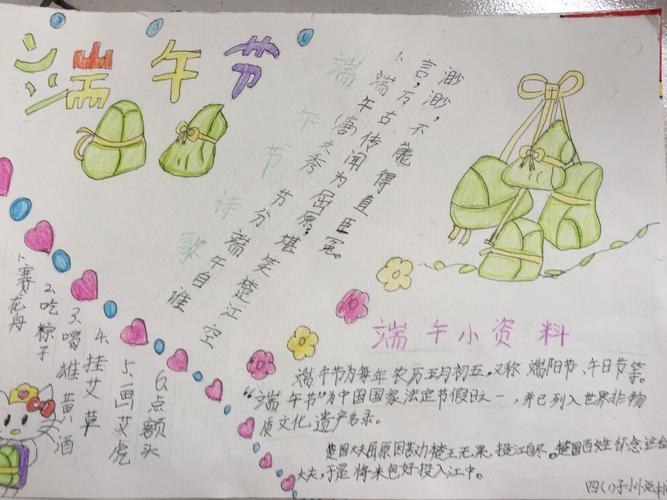 端午节
端午节诗歌
1、端午(唐)文秀
节分端午自谁
言，万古传闻为屈原；
堪笑楚江空
渺渺，不能得直臣冤。
1、赛花舟
2、吃粽子
3、喝雄黄酒
4、挂艾草
5、画艾虎
6、点额头
端午小资料
端午节为每年农历五月初五，又称端阳节、午日节等。
“端午节”为中国国家法定节假日之一，并已列入世界非物
质文化遗产名录。
楚国大夫屈原因苦劝楚王无果，投江自尽。楚国百姓怀念这位
大夫，于是将米包好投入江中。
四(1)